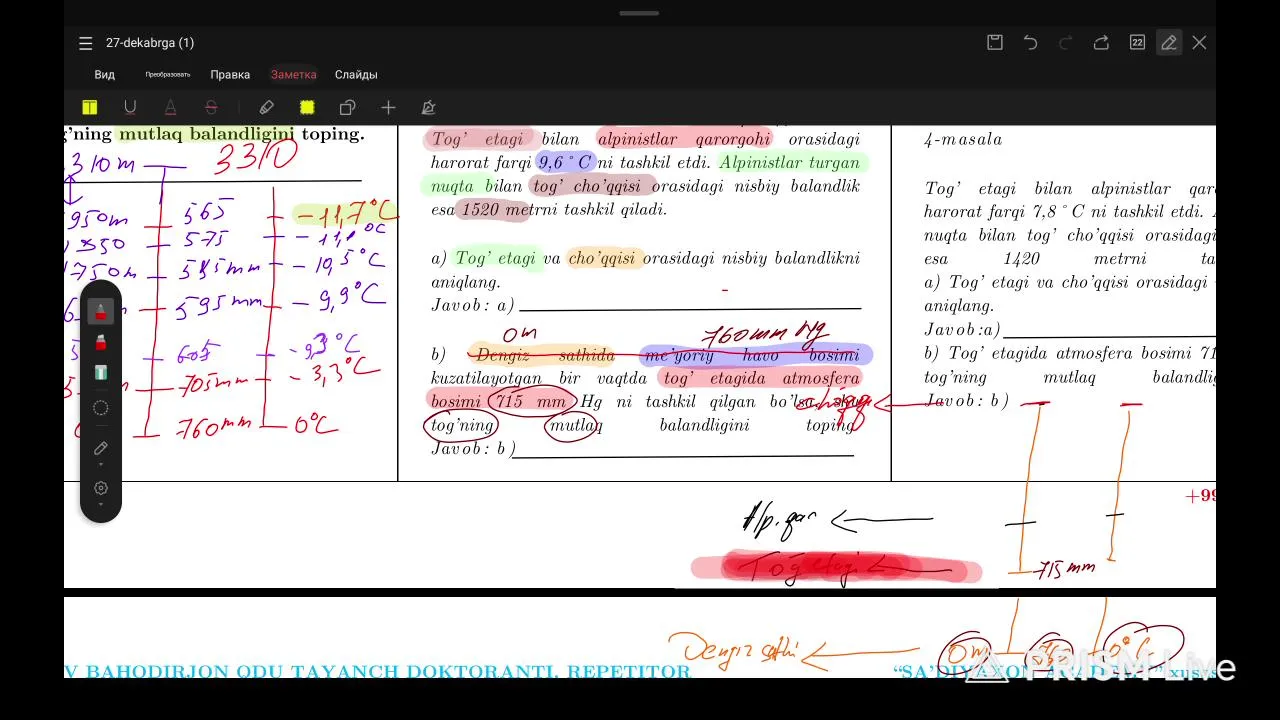 27-dekabrga (1)
22
Вид
Преобразовать
Правка
Заметка
Слайды
g'ning mutlaq balandligini toping.
310 m
3310
950m
565
-11,7°C
575
1750m
585mm
-10,5°C
595mm
-9,9°C
605
705mm
-3,3°C
760mm
0°C
Tog' etagi bilan alpinistlar qarorgohi orasidagi
harorat farqi 9,6°C ni tashkil etdi. Alpinistlar turgan
nuqta bilan tog' cho'qqisi orasidagi nisbiy balandlik
esa 1520 metrni tashkil qiladi.
a) Tog' etagi va cho'qqisi orasidagi nisbiy balandlikni
aniqlang.
Javob: a)
0m
760mm Hg
b) Dengiz sathida me'yoriy havo bosimi
kuzatilayotgan bir vaqtda tog' etagida atmosfera
bosimi 715 mm Hg ni tashkil qilgan bo'lsa,
tog'ning mutlaq balandligini toping
Javob: b)
4-masala
Tog' etagi bilan alpinistlar qar
harorat farqi 7,8°C ni tashkil etdi.
nuqta bilan tog' cho'qqisi orasidagi
esa 1420 metrni ta
a) Tog' etagi va cho'qqisi orasidagi
aniqlang.
Javob:a)
b) Tog' etagida atmosfera bosimi 71
tog'ning mutlaq balandlig
Javob: b)
+99
Alp.qar
Tog' etagi
715 mm
Dengiz sathi
0m
0°C
V BAHODIRJON QDU TAYANCH DOKTORANTI, REPETITOR
"SA'DIYAXON ACADEMY" xusus
PRISM Live